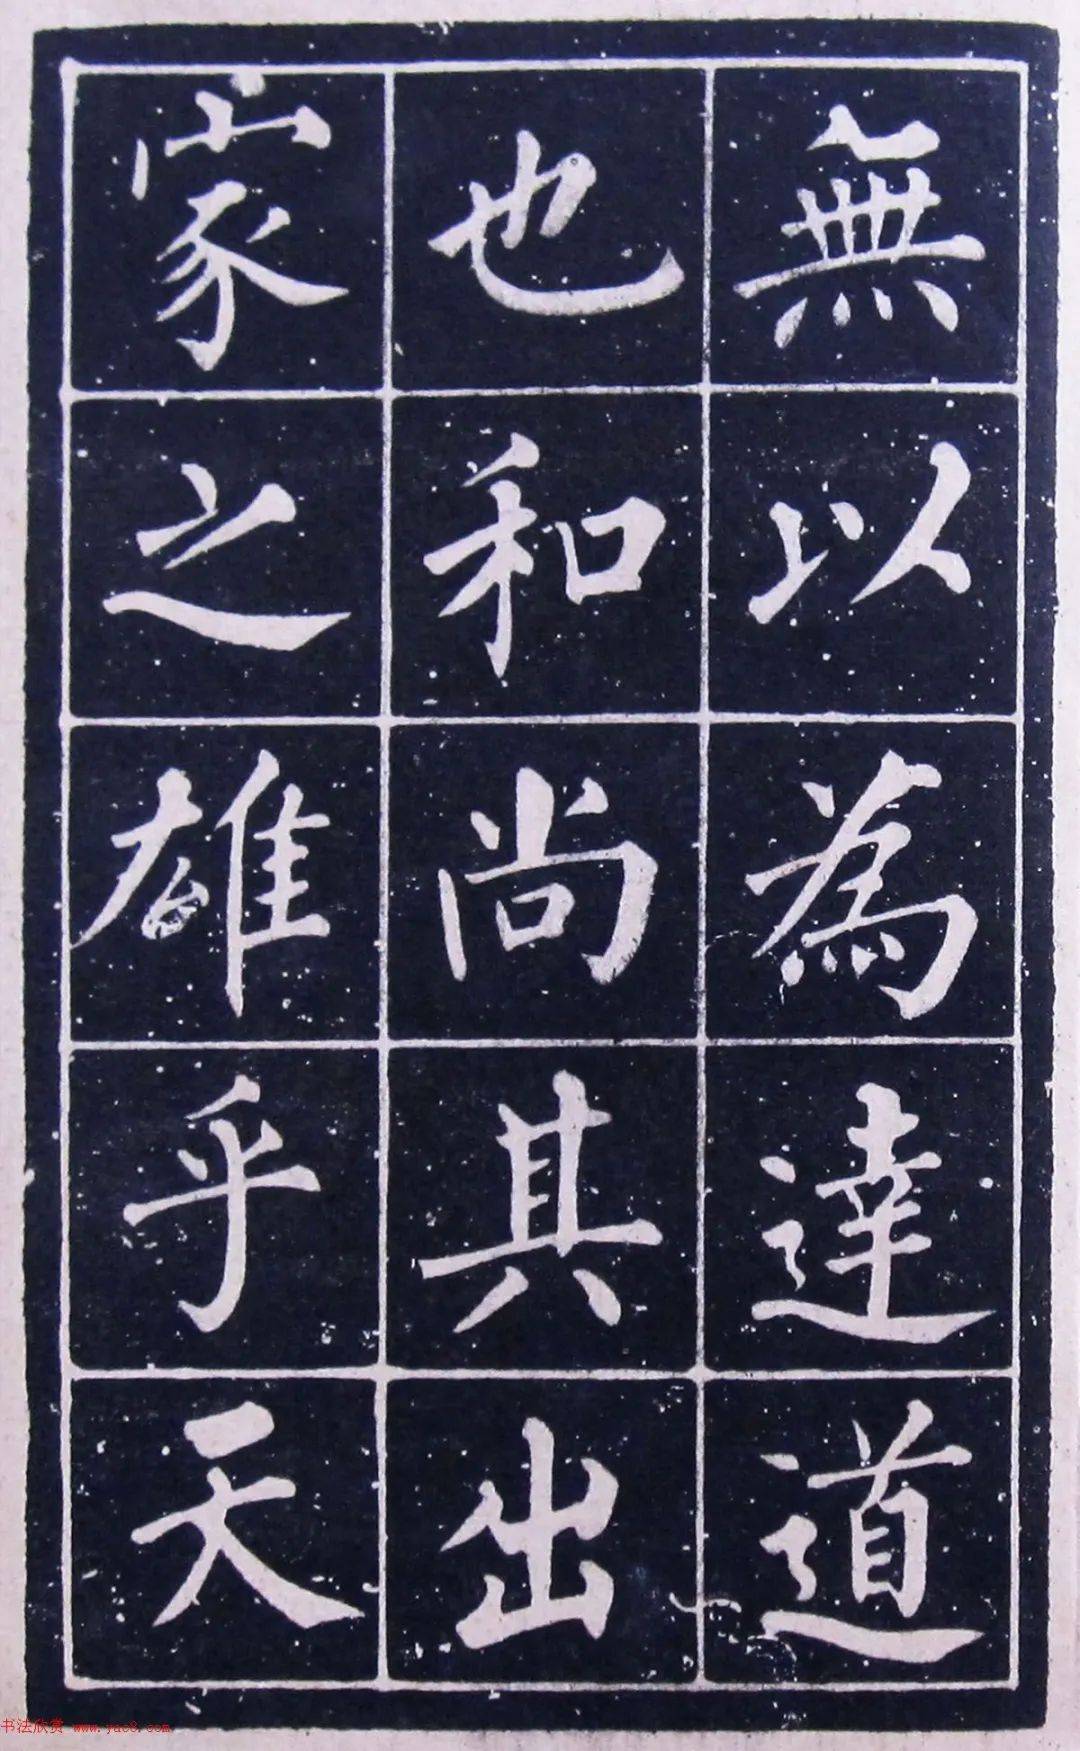 無以為達道
也和尚其出
家之雄乎天
书法欣赏 www.yac8.com